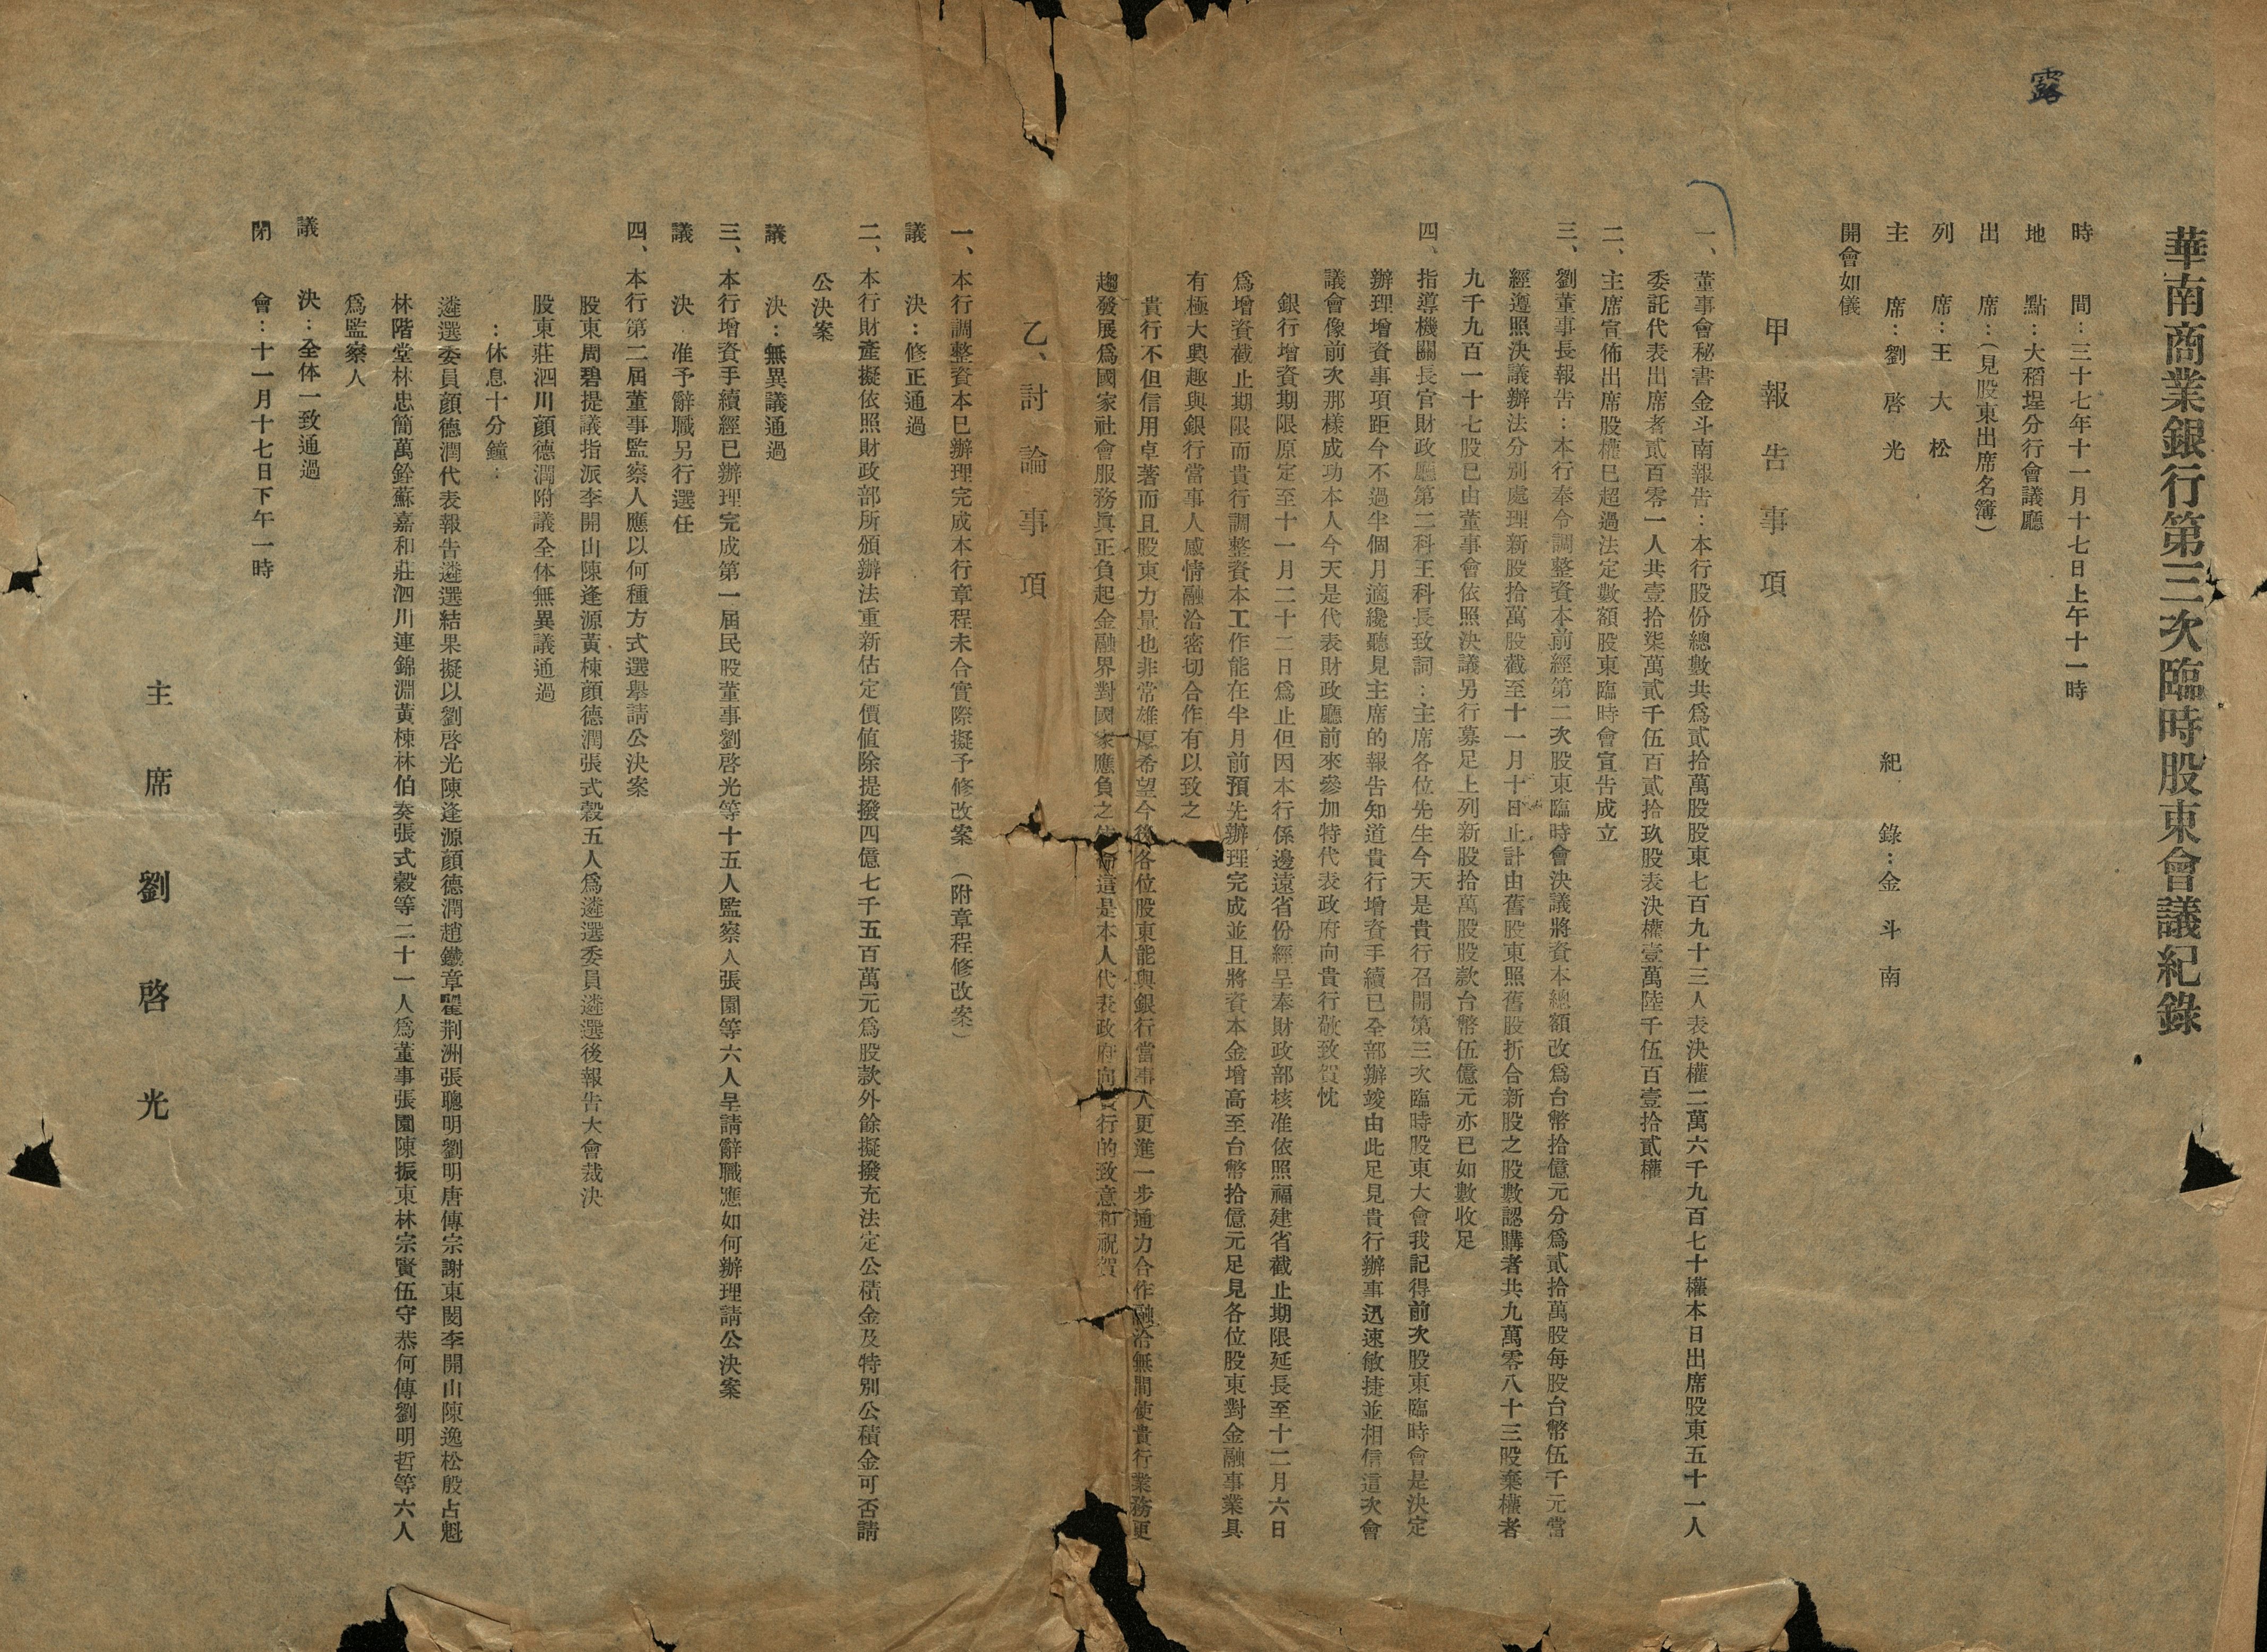 露
華南商業銀行第三次臨時股東會議紀錄
時 間：三十七年十一月十七日上午十一時
地 點：大稻埕分行會議廳
出 席：（見股東出席名簿）
列 席：王大松
主 席：劉啓光 紀 錄：金斗南
開會如儀
甲 報告事項
一、董事會秘書金斗南報告：本行股份總數共爲貳拾萬股股東七百九十三人表決權二萬六千九百七十權本日出席股東五十一人
委託代表出席者貳百零一人共壹拾柒萬貳千伍百貳拾玖股表決權壹萬陸千伍百壹拾貳權
二、主席宣佈出席股權已超過法定數額股東臨時會宣告成立
三、劉董事長報告：本行奉令調整資本前經第二次股東臨時會決議將資本總額改爲台幣拾億元分爲貳拾萬股每股台幣伍千元當
經遵照決議辦法分別處理新股拾萬股截至十一月十日止計由舊股東照舊股折合新股之股數認購者共九萬零八十三股棄權者
九千九百一十七股已由董事會依照決議另行募足上列新股拾萬股股款台幣伍億元亦已如數收足
四、指導機關長官財政廳第二科王科長致詞：主席各位先生今天是貴行召開第三次臨時股東大會我記得前次股東臨時會是決定
辦理增資事項距今不過半個月適纔聽見主席的報告知道貴行增資手續已全部辦竣由此足見貴行辦事迅速敏捷並相信這次會
議會像前次那樣成功本人今天是代表財政廳前來參加特代表政府向貴行敬致賀忱
銀行增資期限原定至十一月二十二日爲止但因本行係邊遠省份經呈奉財政部核准依照福建省截止期限延長至十二月六日
爲增資截止期限而貴行調整資本工作能在半月前預先辦理完成並且將資本金增高至台幣拾億元足見各位股東對金融事業具
有極大興趣與銀行當事人感情融洽密切合作有以致之
貴行不但信用卓著而且股東力量也非常雄厚希望今後各位股東能與銀行當事人更進一步通力合作融洽無間使貴行業務更
趨發展爲國家社會服務眞正負起金融界對國家應負之使命這是本人代表政府向貴行的致意和祝賀
乙、討論事項
一、本行調整資本已辦理完成本行章程未合實際擬予修改案（附章程修改案）
議 決：修正通過
二、本行財產擬依照財政部所頒辦法重新估定價值除提撥四億七千五百萬元爲股款外餘擬撥充法定公積金及特別公積金可否請
公決案
議 決：無異議通過
三、本行增資手續經已辦理完成第一屆民股董事劉啓光等十五人監察人張園等六人呈請辭職應如何辦理請公決案
議 決 准予辭職另行選任
四、本行第二屆董事監察人應以何種方式選舉請公決案
股東周碧提議指派李開山陳逢源黃棟顏德潤張式穀五人爲遴選委員遴選後報告大會裁決
股東莊泗川顏德潤附議全体無異議通過
：休息十分鐘：
遴選委員顏德潤代表報告遴選結果擬以劉啓光陳逢源顏德潤趙鐵章瞿荆洲張聰明劉明唐傳宗謝東閔李開山陳逸松殷占魁
林階堂林忠簡萬銓蘇嘉和莊泗川連錦淵黃棟林伯奏張式穀等二十一人爲董事張園陳振東林宗賢伍守恭何傳劉明哲等六人
爲監察人
議 決：全体一致通過
閉 會：十一月十七日下午一時
主席 劉啓光